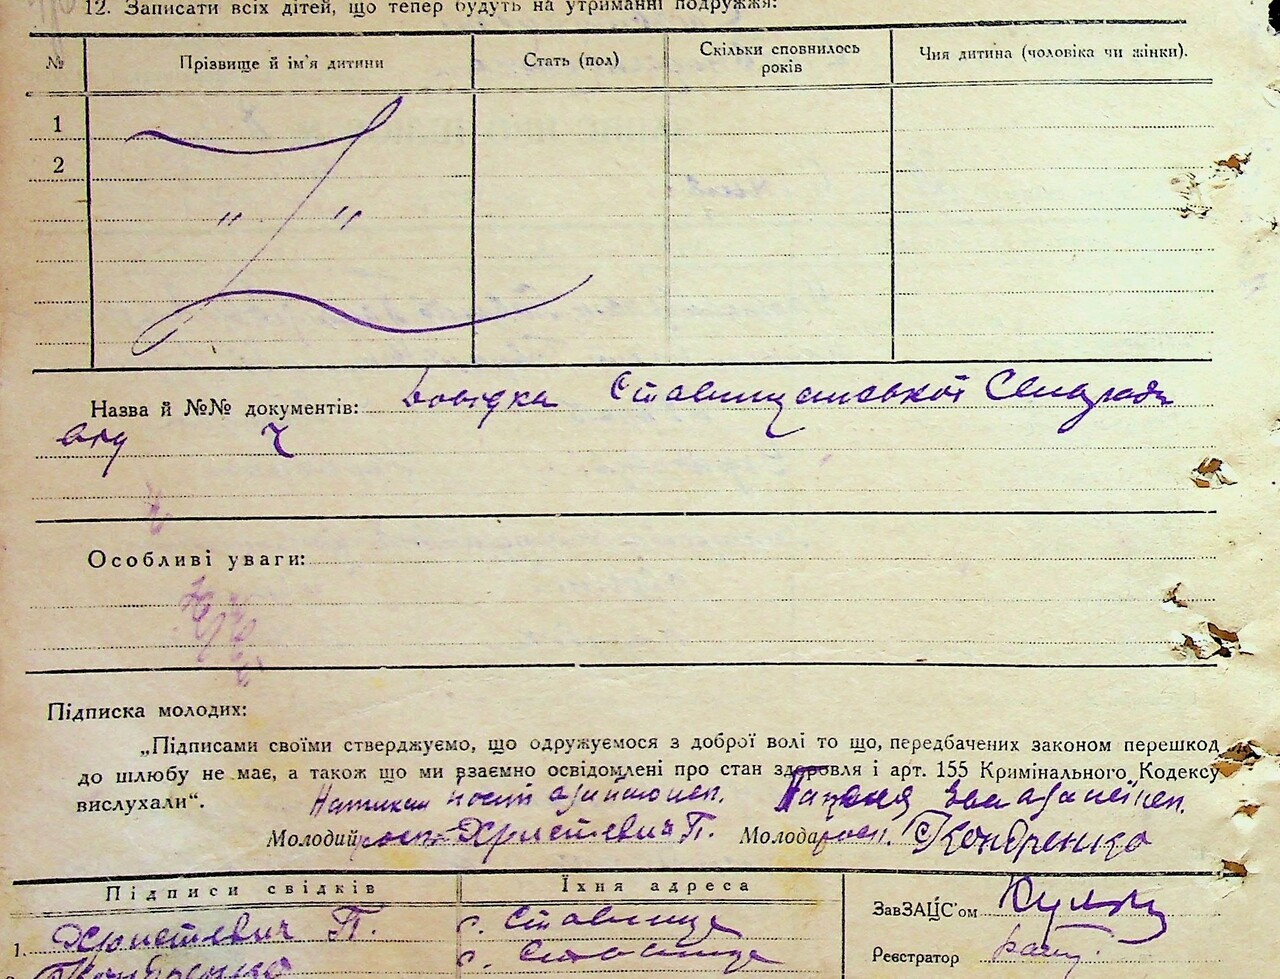 12. Записати всіх дітей, що тепер будуть на утриманні подружжя:
№ Прізвище й ім'я дитини Стать (пол) Скільки сповнилось років Чия дитина (чоловіка чи жінки).
1
2
" "
Назва й №№ документів: Довідка Ставищенської Сільради
Особливі уваги:
Підписка молодих:
„Підписами своїми стверджуємо, що одружуємося з доброї волі то що, передбачених законом перешкод
до шлюбу не має, а також що ми взаємно освідомлені про стан здоровля і арт. 155 Кримінального Кодексу
вислухали“.
Молодий Христевич П. Молода Кондренко
Підписи свідків Їхня адреса
ЗавЗАЦС'ом
1. Христевич П. с. Ставище
Реєстратор
Кондренко с. Ставище